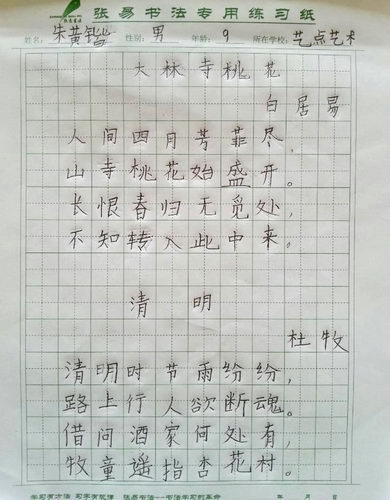 张易书法专用练习纸
姓名: 朱黄锴 性别: 男 年龄: 9 所在学校: 艺点艺术
大林寺桃花
白居易
人间四月芳菲尽,
山寺桃花始盛开。
长恨春归无觅处,
不知转入此中来。
清明
杜牧
清明时节雨纷纷,
路上行人欲断魂。
借问酒家何处有,
牧童遥指杏花村。
学习有方法 习字有规律 张易书法--书法学习的革命 年 月 日